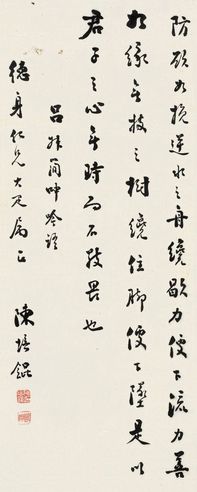 防欲如挽逆水之舟纔歇力便下流力善
如緣無枝之樹纔住脚便下墜是以
君子之心無時而不敬畏也
呂叔簡呻吟語
德身仁兄大疋屬正
陳培錕